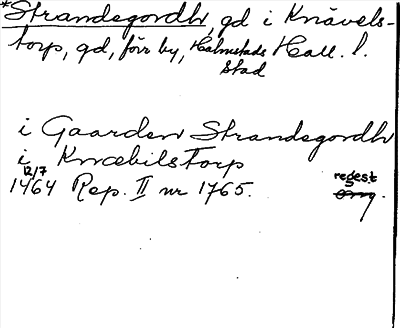 *Strandegordh, gd i Knävels-
torp, gd, förr by, Halmstads Hall. l.
stad
i Gaarden Strandegordh
i Knæbilstorp
12/7
1464 Rep. II nr 1765. regest
orig.